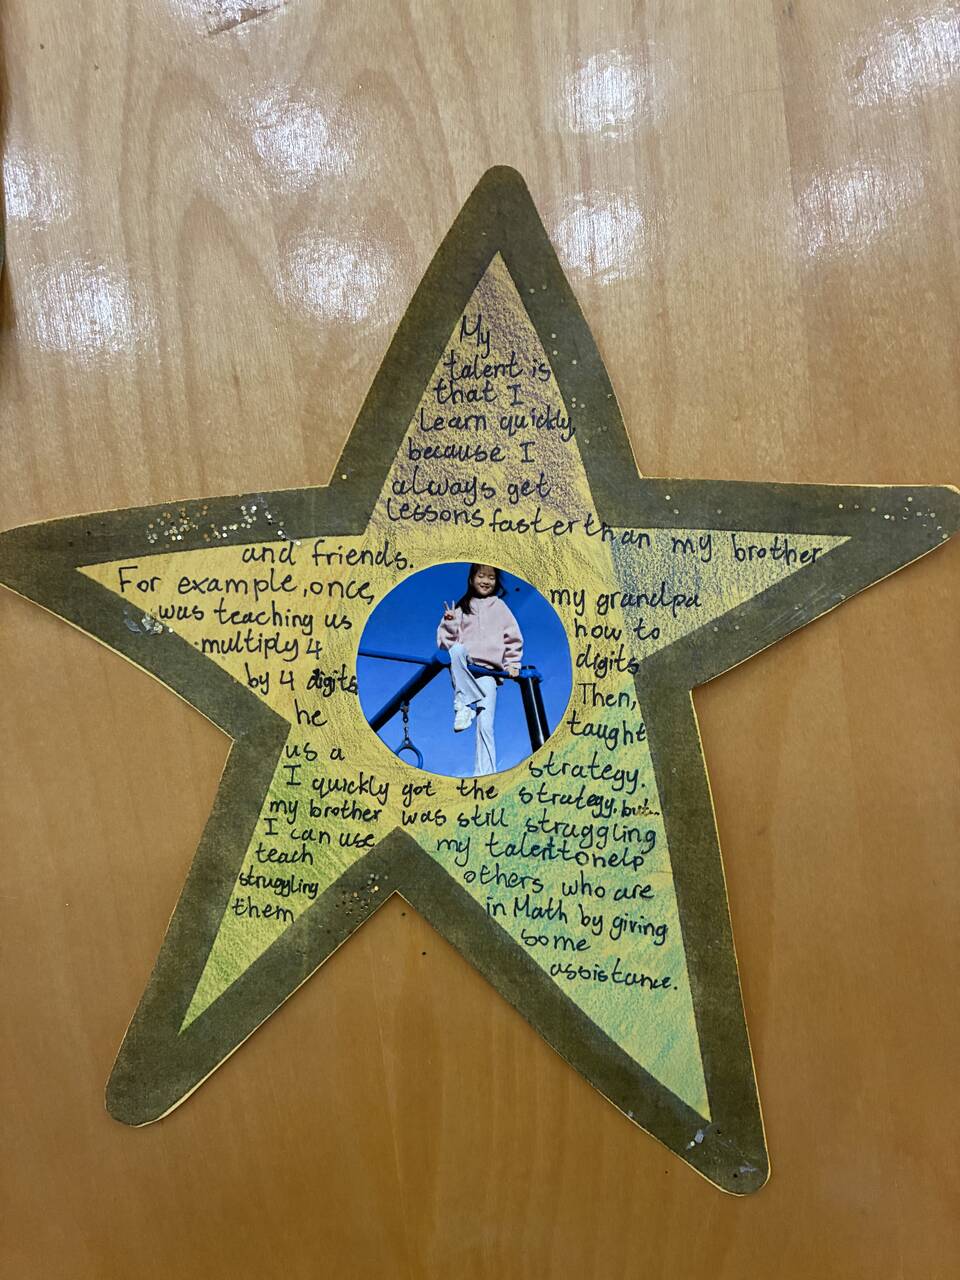 My
talent is
that I
Learn quickly,
because I
always get
lessons faster than my brother
and friends.
For example, once, my grandpa
was teaching us how to
multiply 4 digits
by 4 digits Then,
he taught
us a strategy.
I quickly got the strategy, but
my brother was still struggling
I can use my talent to help
teach others who are
struggling in Math by giving
them some
assistance.